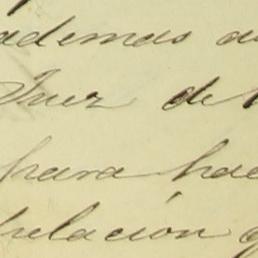 ademas
Juez de
para hac
relación